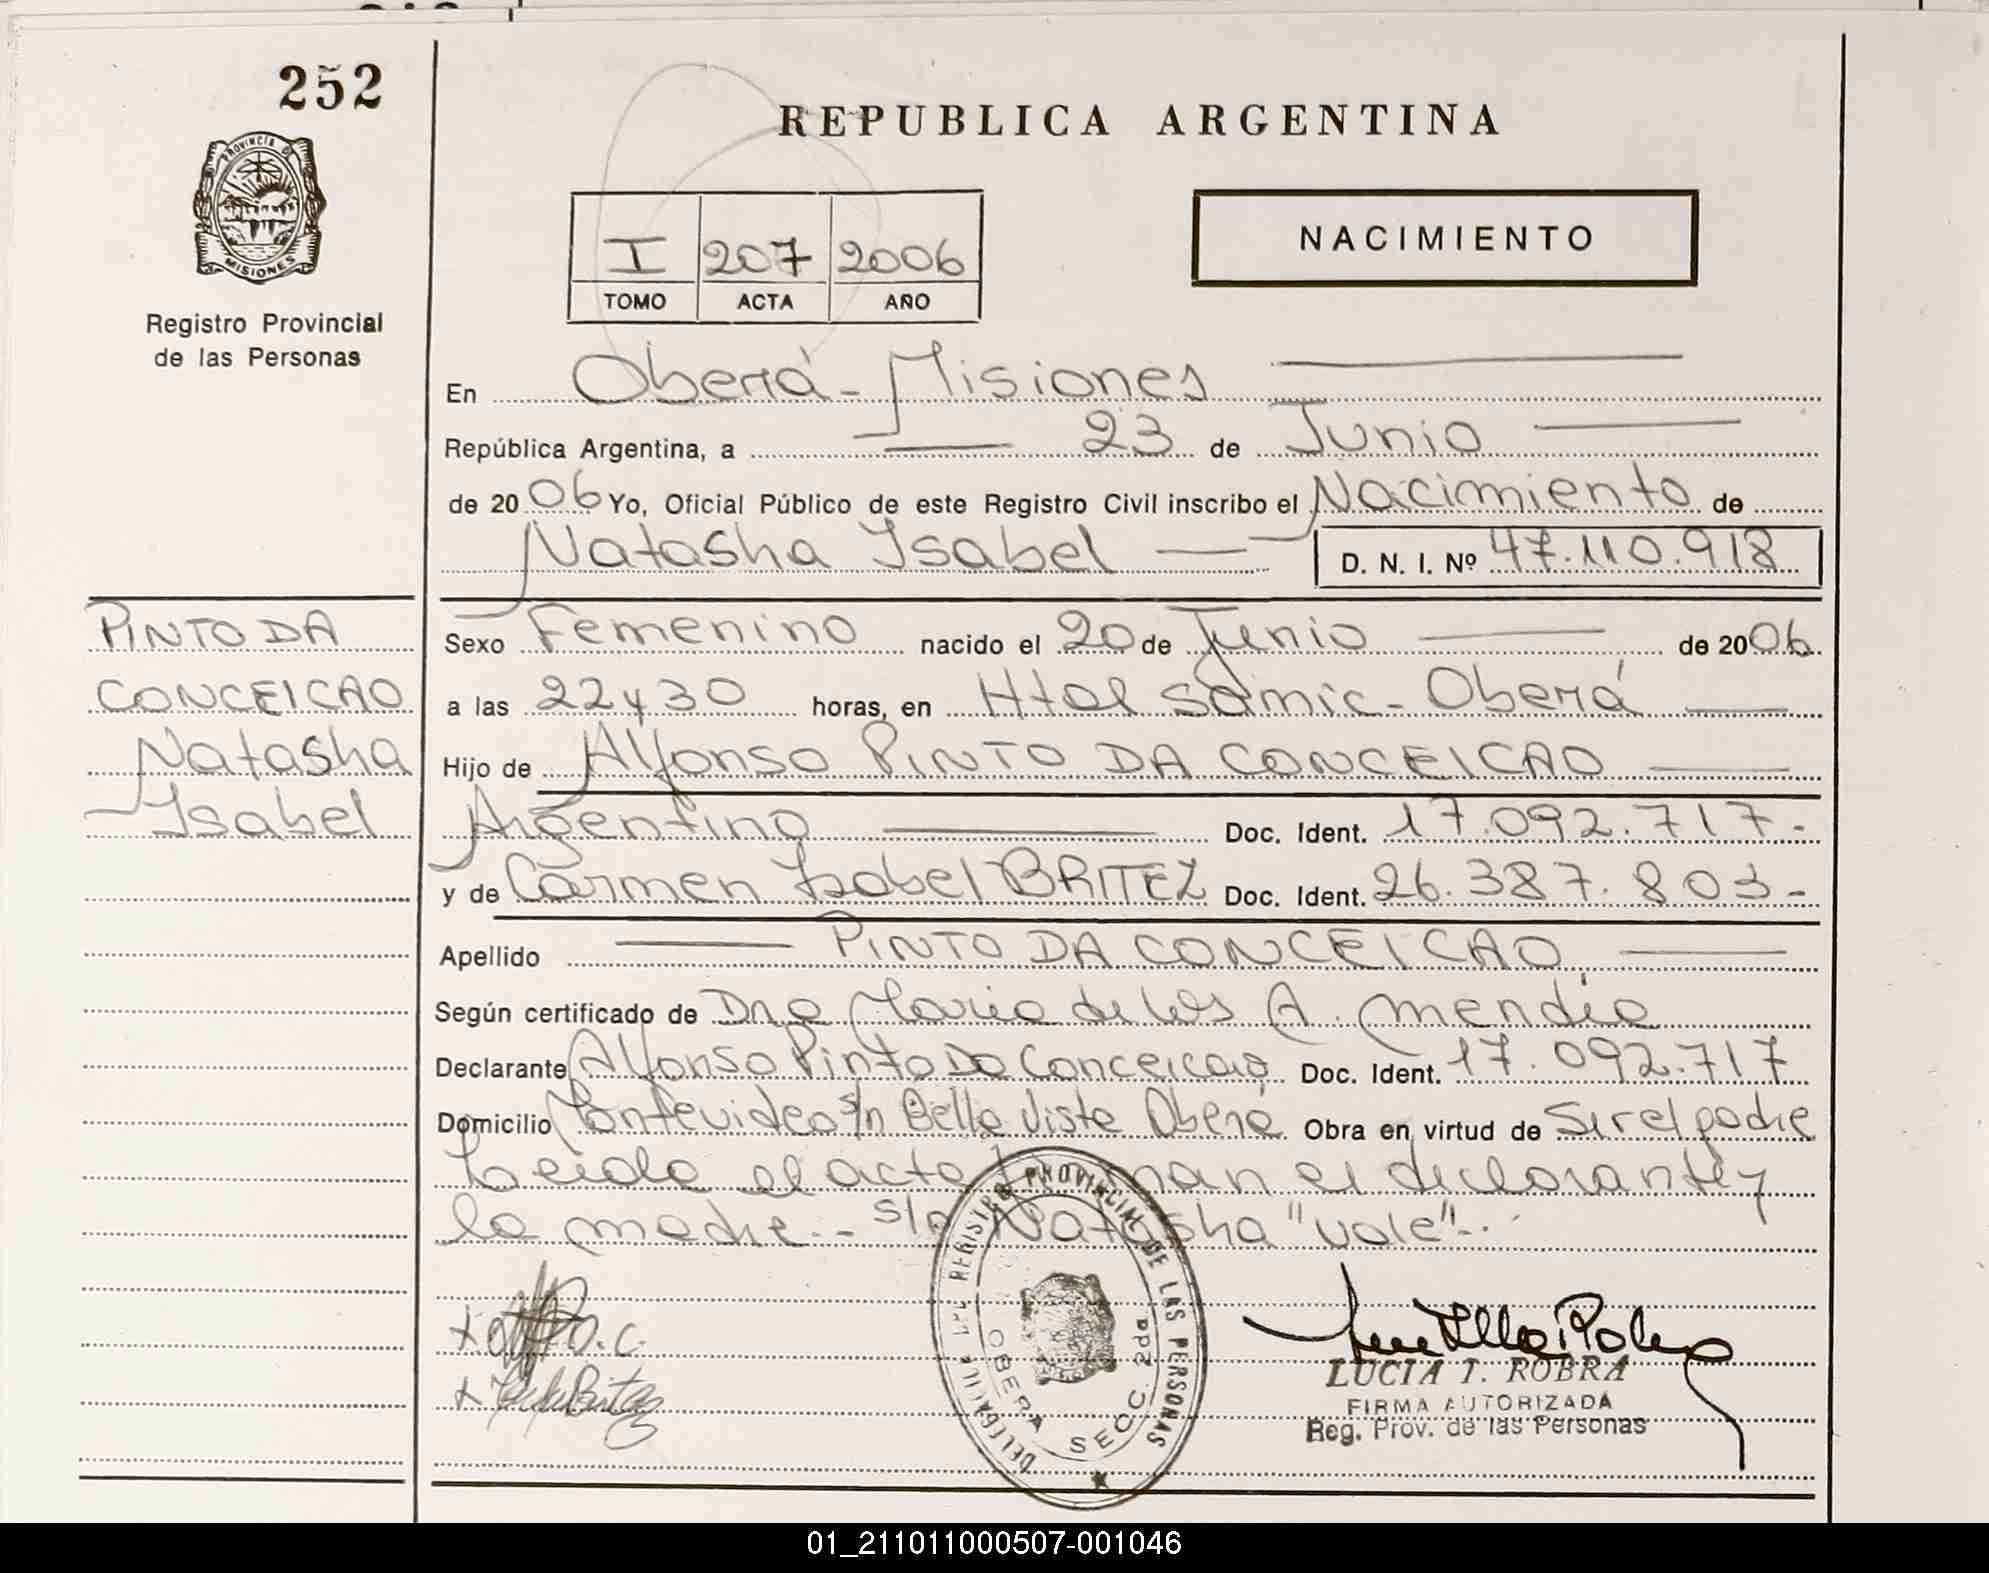 252
PROVINCIA DE
MISIONES
Registro Provincial
de las Personas
REPUBLICA ARGENTINA
I 207 2006
TOMO ACTA AÑO
NACIMIENTO
En Oberá - Misiones
República Argentina, a 23 de Junio
de 2006 Yo, Oficial Público de este Registro Civil inscribo el Nacimiento de
Natasha Isabel D. N. I. Nº 47.110.918
PINTO DA
CONCEICAO
Natasha
Isabel
Sexo Femenino nacido el 20 de Junio de 2006.
a las 22 y 30 horas, en Htal Samic - Oberá
Hijo de Alfonso PINTO DA CONCEICAO
Argentino Doc. Ident. 17.092.717-
y de Carmen Isabel BRITEZ Doc. Ident. 26.387.803-
Apellido PINTO DA CONCEICAO
Según certificado de Dra Maria de los A. Mendia
Declarante Alfonso Pinto Da Conceicao Doc. Ident. 17.092.717
Domicilio Montevideo s/n Bella Vista Oberá Obra en virtud de Ser el padre
Leida el acta firman el declarante y
la madre.- s/r Natasha "vale"-.
DELEGACION DEL REGISTRO PROVINCIAL DE LAS PERSONAS
OBERA SECC. 2da
LUCIA I. ROBRA
FIRMA AUTORIZADA
Reg. Prov. de las Personas
01_211011000507-001046